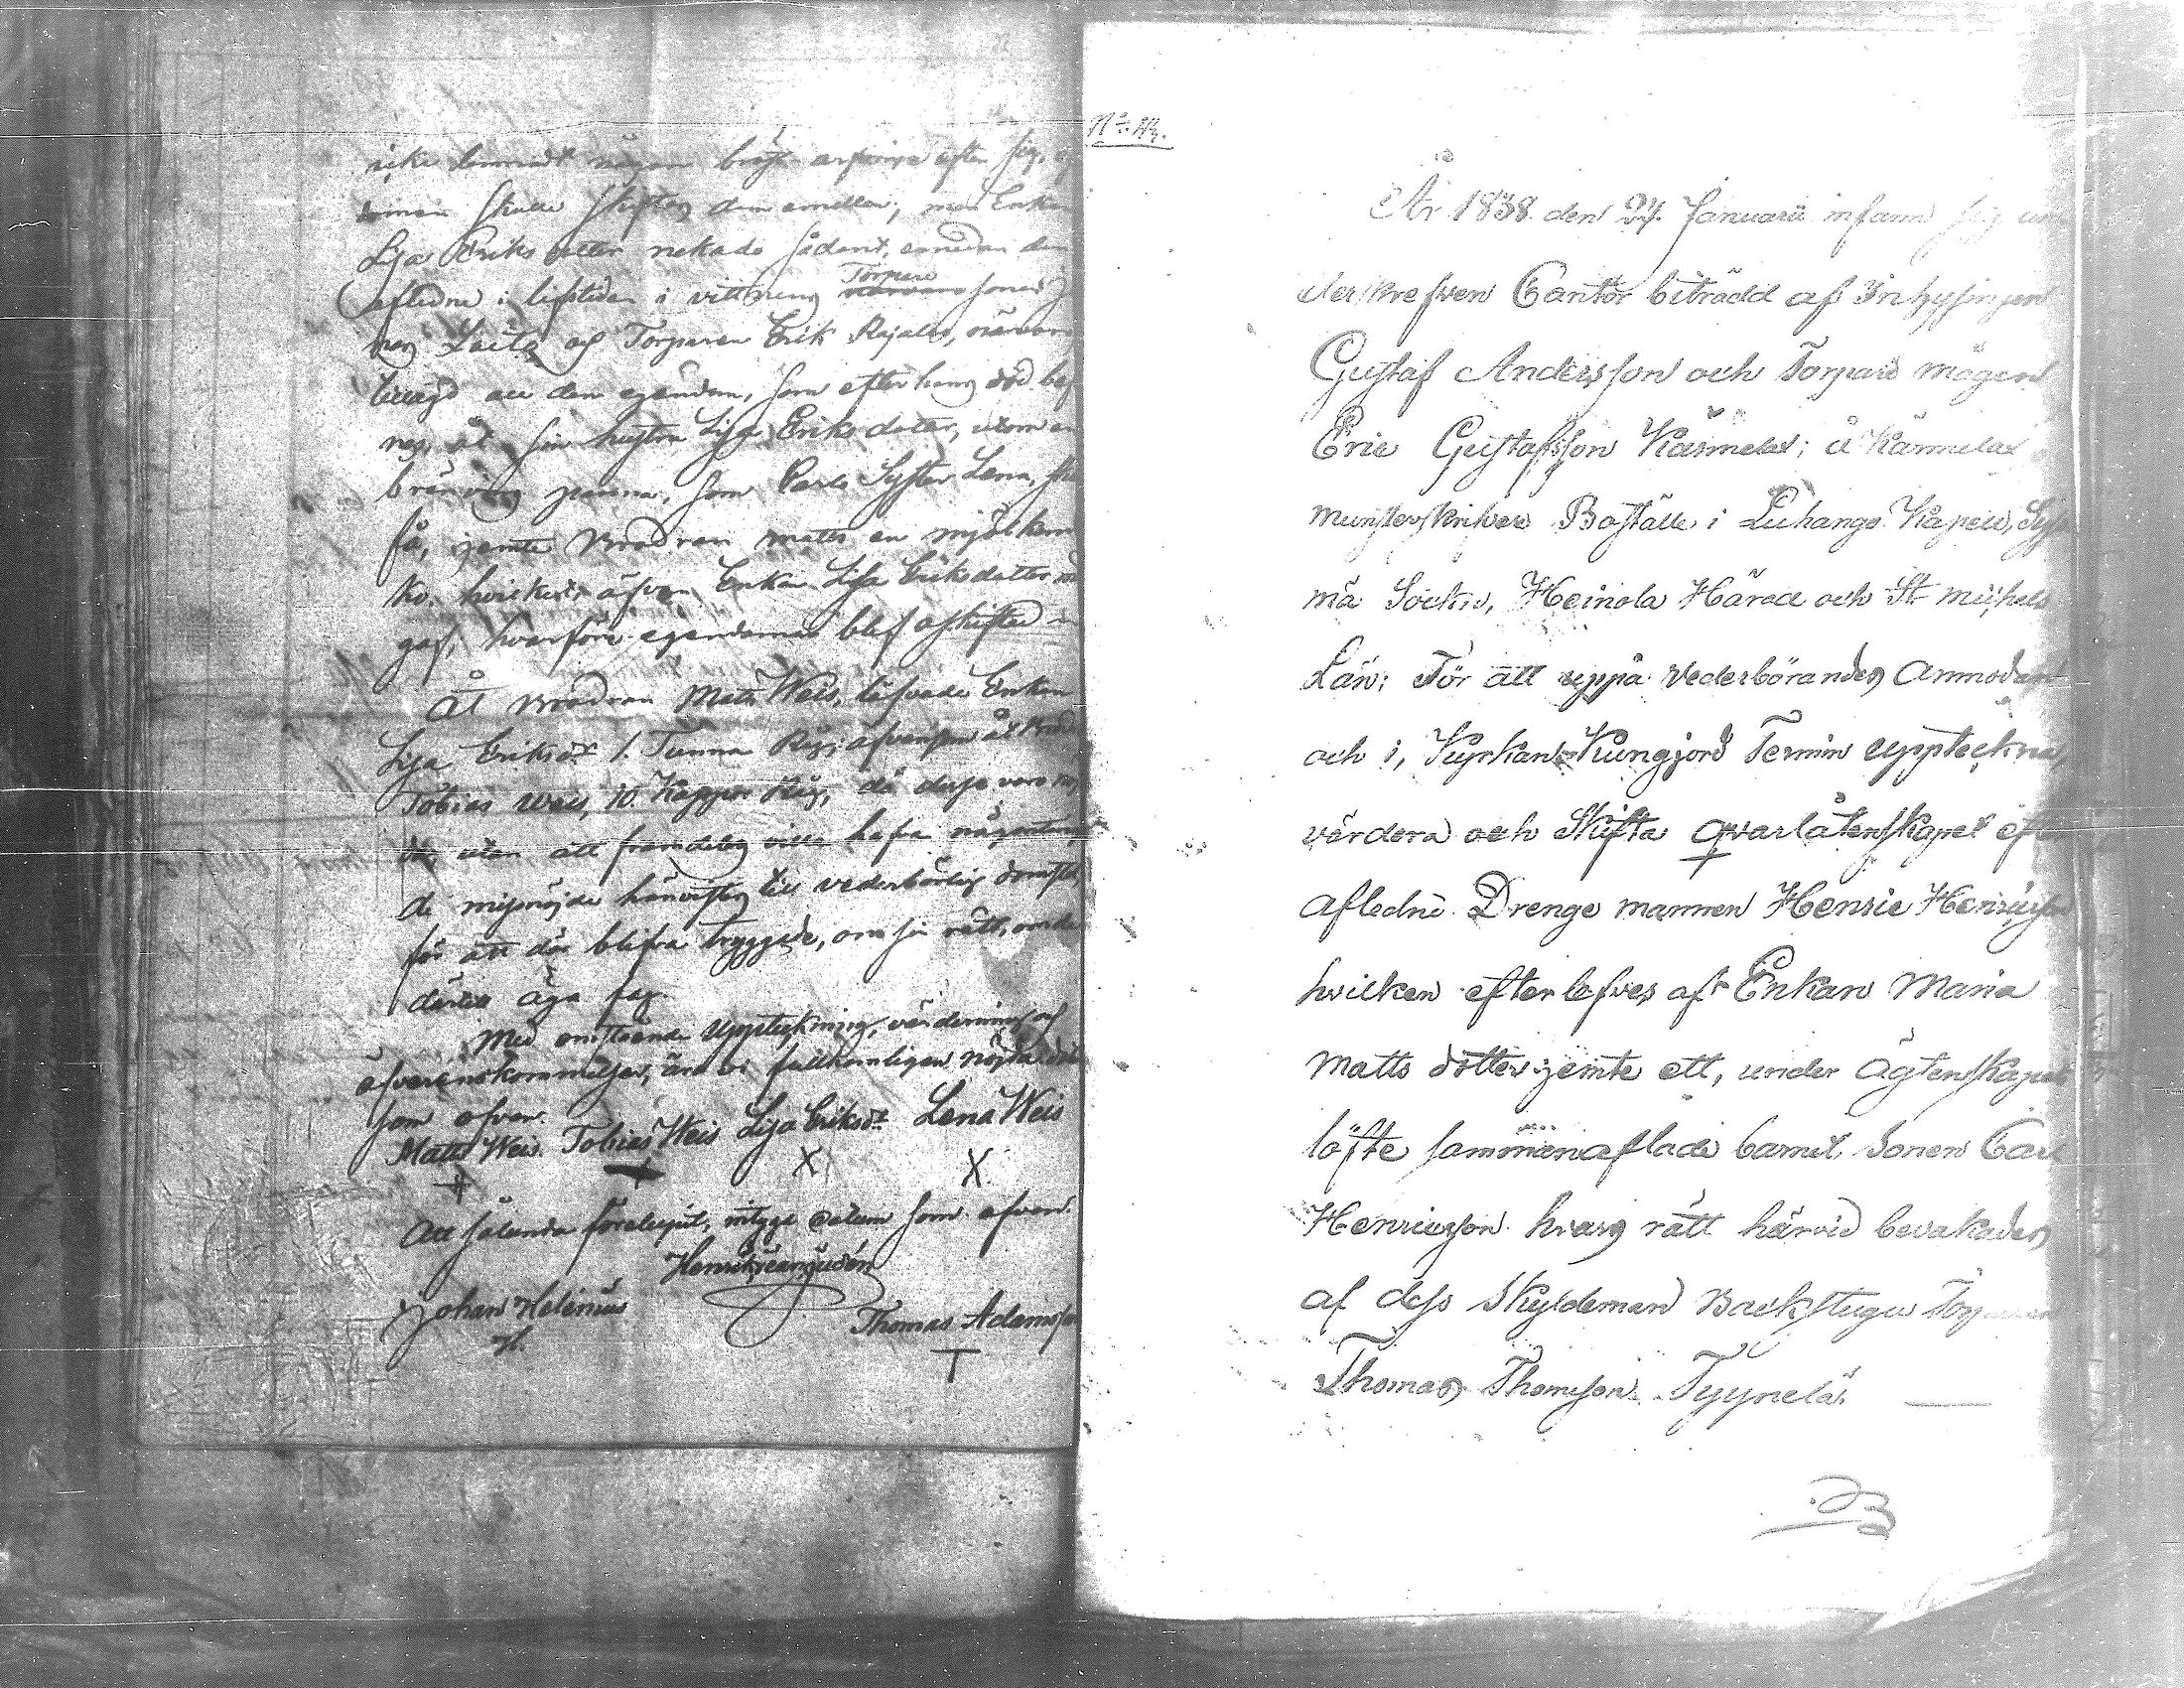 icke lemnadt någon bröst arfvinge efter sig,
skulle skiftas dem emellan; men Enkan
Lisa Eriks dotter nekade sådant, emedan den
afledne i lifstiden i vittneng Torpare
Laita och Torparen Erik Rajala, närvaro
tillägt all den egendom, som efter hans död
nes, åt sin hustru Lisa Eriks dotter, utom en
brännvins panna, som Carls Syster Lena,
få, jemte Brodren Matts en mjölkan
ko. hvilket, äfven Enkan Lisa Eriksdotter
gaf, hvarföre egendomen blef oskiftad
Åt Brodren Matts Weis, låfvade Enkan
Lisa Eriksdr 1. Tunna Råg; afvensom åt
Tobias Weis, 10. Kappar Råg, då desse voro
utan att framdeles vilja hafva någon
de misnöjde hänvistes till vederbörlig domstol,
för att der blifva tryggade, om sin rätt,
dertill äga fog.
Med omstående uppteckning, värdering och
öfverenskommelser, äro vi fullkomligen nöjda
som ofvan.
Matts Weis Tobias Weis Lisa Eriksdr Lena Weis
X X
Att sålunda föreluput, intyga datum som ofvan.
Johan Helenius
H.
Thomas Adamsson
T
No. 44.
År 1838. den 24. Januarii infann sig un
derskrefven Cantor biträdd af Inhysingen
Gustaf Andersson och Torpare mågen
Eric Gustafsson Kärmelax; å Kärmelax
munsterskrifvare Boställe i Luhango Kapell, Sys
mä Sockn, Heinola Härad och St Michels
Län; För att uppå Vederbörandes Anmodan
och i, Kyrkan Kungjord Termin uppteckna,
värdera och Skifta qvarlåtenskapet efter
afledne Drenge mannen Henric Henricsson
hvilken efterlefves af Enkan Maria
Matts dotter jemte ett, under Ägtenskaps
löfte sammanaflade barnet Sonen Carl
Henricsson hvars rätt härvid bevakades
af dess Skyldeman Backstugu Torparen
Thomas Thomsson Tyynelä.